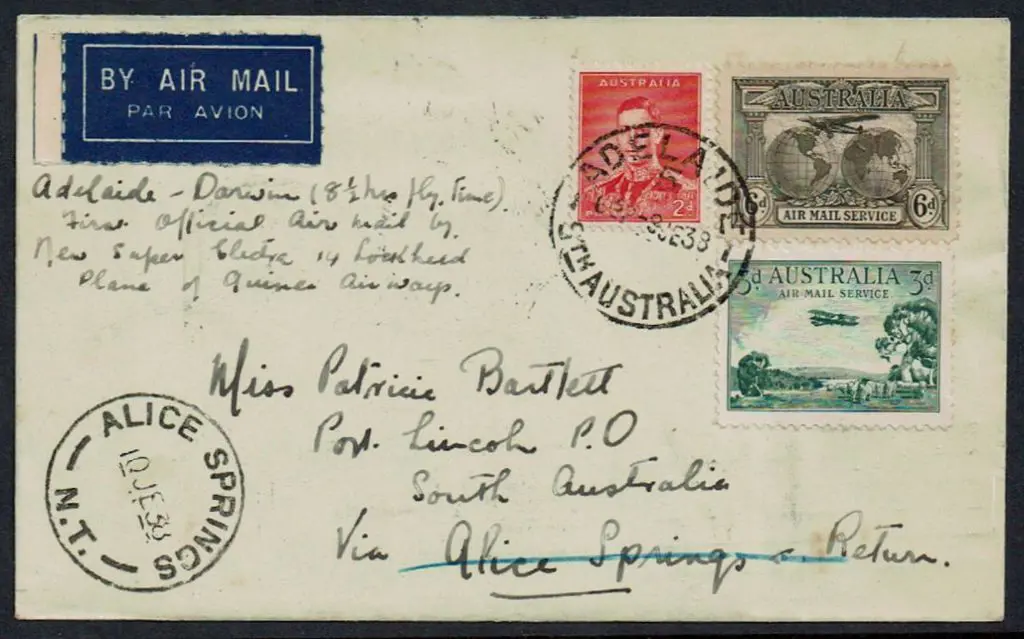 BY AIR MAIL
PAR AVION
Adelaide - Darwin (8½ hrs fly. Time).
First Official Air Mail by
New Super Electra 14 Lockheed
Plane of Guinea Airways.
AUSTRALIA
2d
AUSTRALIA
6d
AIR MAIL SERVICE
6d
3d AUSTRALIA 3d
AIR MAIL SERVICE
ADELAIDE
9JE38
STH AUSTRALIA
Miss Patricia Bartlett
Port Lincoln P.O
South Australia
Via Alice Springs & Return.
ALICE SPRINGS
10JE38
N.T.